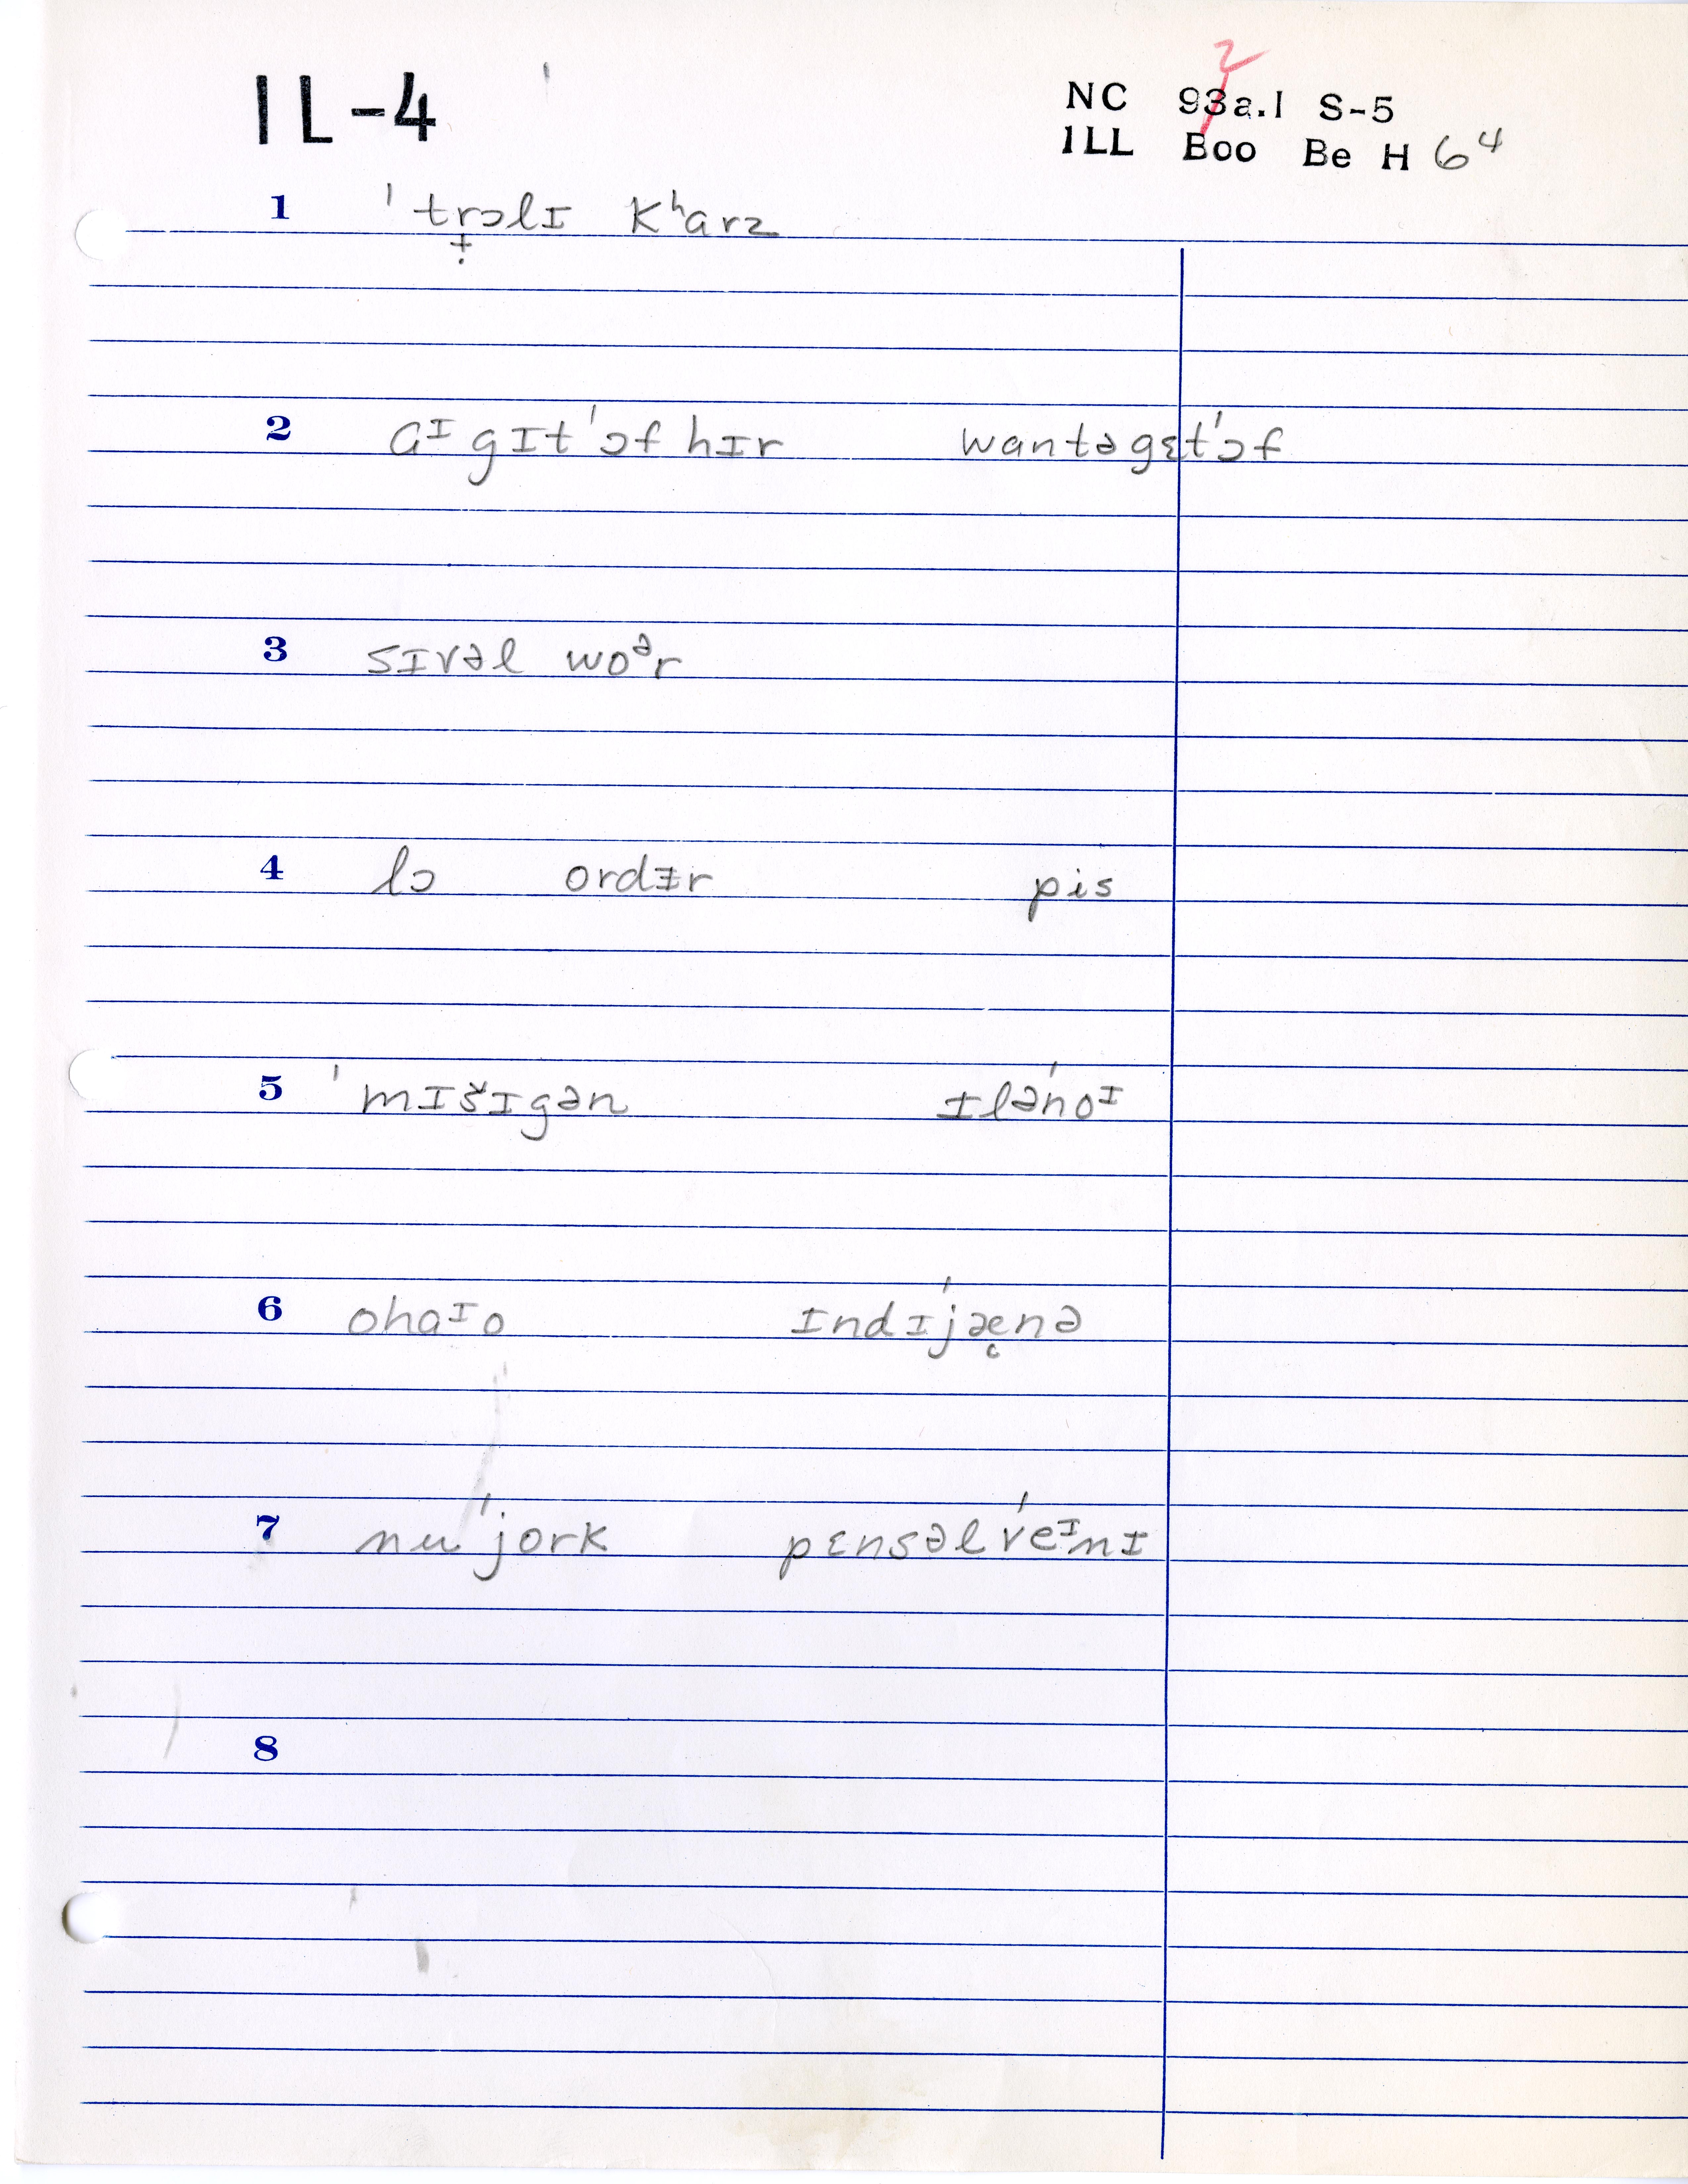 IL-4
2
NC 93a.1 S-5
ILL Boo Be H 64
1 ˈtrɔlɪ Kʰarz
2 aᴵ gɪtˈɔf hɪr wantəgɛtˈɔf
3 sɪvəl woᵊr
4 lɔ ordɪ̵r pis
5 ˈmɪšɪgən ɪləˈnoᴵ
6 ohaᴵo ɪndɪˈjæ̨nə
7 nuˈjork pɛnsəlˈveᴵnɪ
8